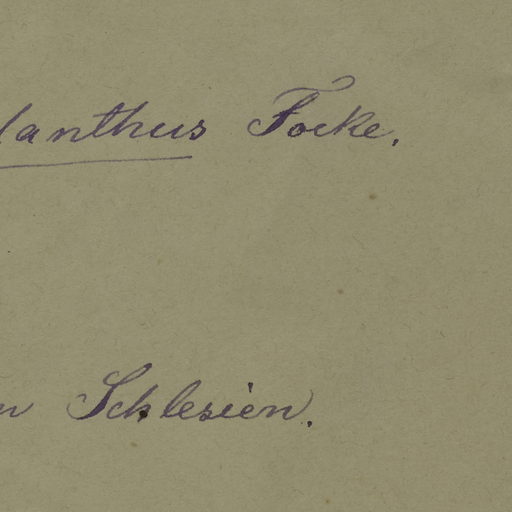 lanthus Focke.
n Schlesien.